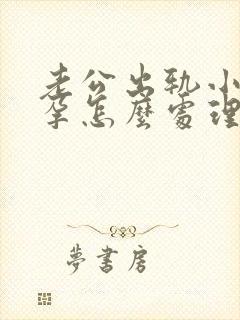 老公出轨小
孕怎麼處理
夢書房